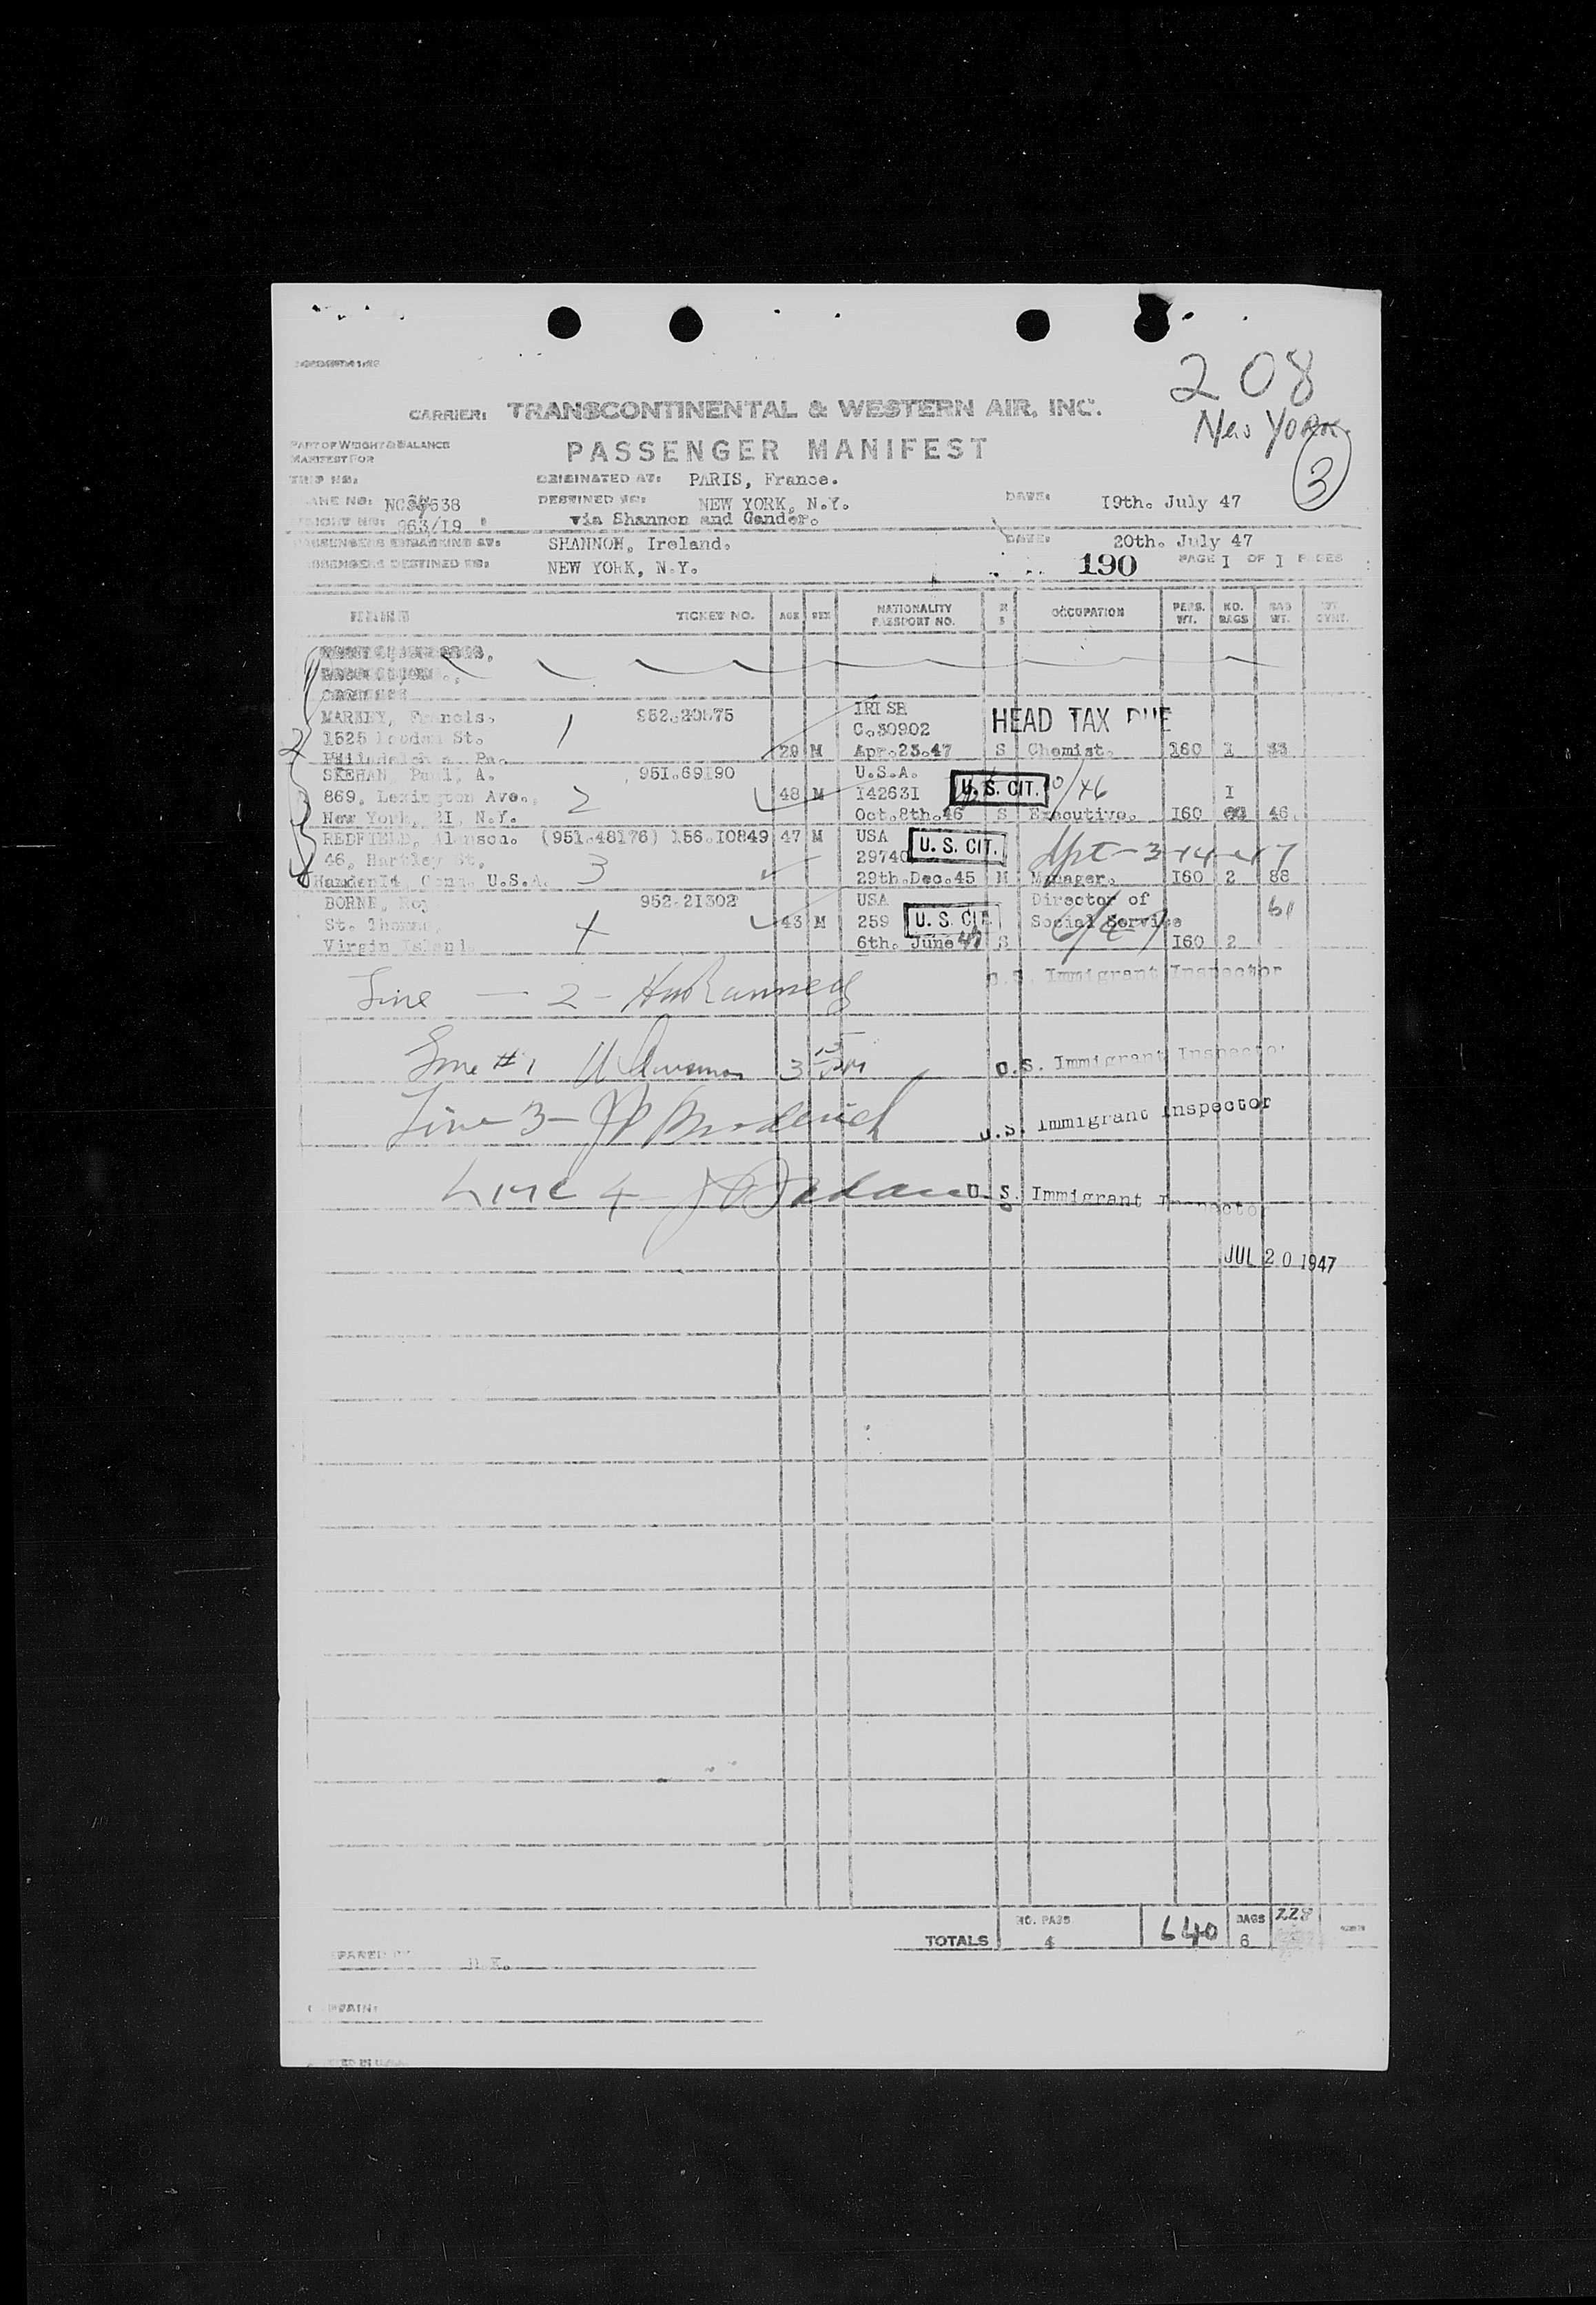 208
New York
3
CARRIER: TRANSCONTINENTAL & WESTERN AIR, INC.
PART OF WEIGHT & BALANCE
MANIFEST FOR
PASSENGER MANIFEST
TRIP NO:
ORIGINATED AT: PARIS, France.
DESTINED TO: NEW YORK, N.Y.
DATE: 19th. July 47
via Shannon and Gander.
963/19
PASSENGERS EMBARKING AT: SHANNON, Ireland.
DATE: 20th. July 47
PASSENGERS DESTINED TO: NEW YORK, N.Y.
190 PAGE 1 OF 1 PAGES
TICKET NO. AGE SEX NATIONALITY PASSPORT NO. M S OCCUPATION PERS. WT. NO. BAGS BAG WT.
MARKEY, Francis. 952.20575 IRISH HEAD TAX DUE
1525 St. 1 C.30902
Philadelphia Pa. 29 M Apr.23.47 S Chemist. 160 1 33
SKEHAN, Paul, A. 951.69190 U.S.A. U. S. CIT. 10/46
869, Lexington Ave., 2 48 M I42631 1
New York, 21, N.Y. Oct.8th.46 S Executive. 160 46.
REDFIELD, Alanson. (951.48176) 156.10849 47 M USA U. S. CIT.
46, Hartley St, 3 29740 3-14-47
Hamden 14, Conn. U.S.A. 29th.Dec.45 M Manager. 160 2 88
BORNE, Roy 952.21302 USA Director of
St. Thomas, 43 M 259 U. S. CIT. Social Service 61
Virgin Island. 4 6th. June 47 S 160 2
Line — 2 - U.S. Immigrant Inspector
Line #1 3 15 PM U.S. Immigrant Inspector
Line 3 - U.S. Immigrant Inspector
Line 4 - U.S. Immigrant Inspector
JUL 20 1947
TOTALS NO. PASS 4 640 BAGS 6 228